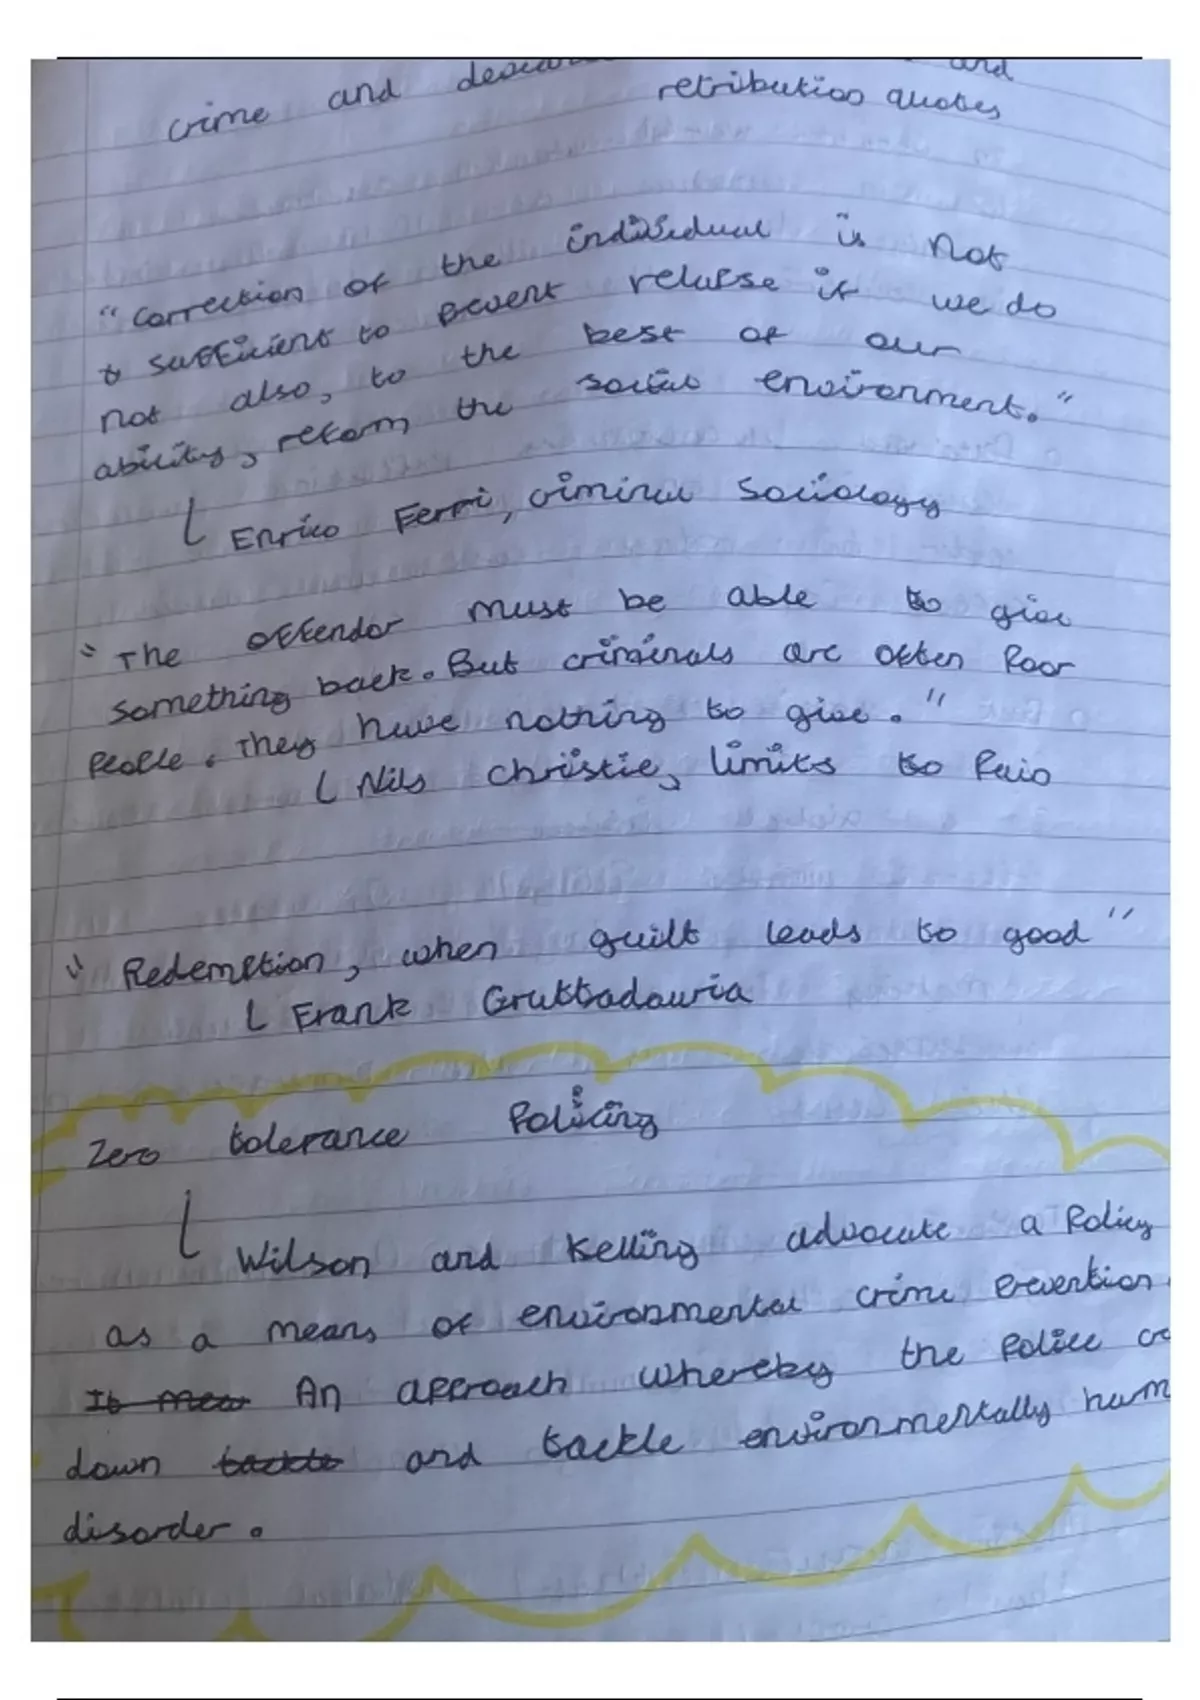 and
crime and
retribution quotes
"Correction of the individual is not
sufficient to prevent relapse if we do
not also, to the best of our
ability, reform the social environment."
Enrico Ferri, criminal Sociology
"The offendor must be able to give
something back. But criminals are often poor
people. They have nothing to give."
Nils christie, limits to Pain
"Redemption, when guilt leads to good"
Frank Gruttadauria
Zero tolerance Policing
Wilson and Kelling advocate a Policy
as a means of environmental crime prevention.
It An approach whereby the Police
down tackle and tackle environmentally
disorder.